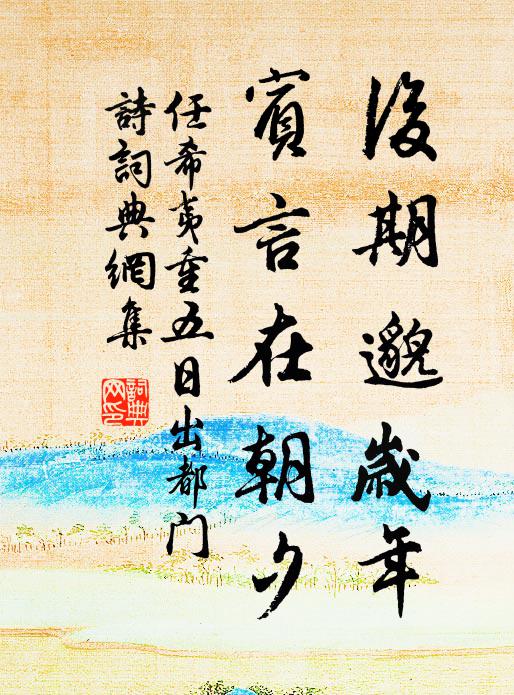 後期邈歲年
賓言在朝夕
任希夷重五日出都门
詩詞典網集
詞典网印